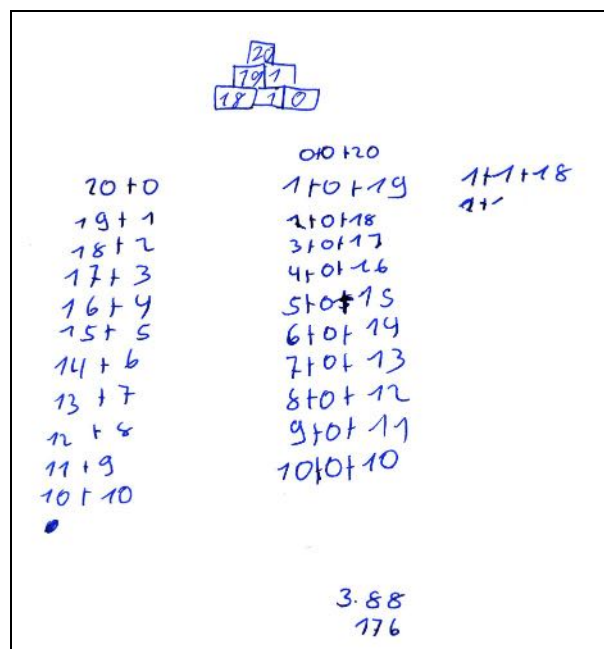 20
19 1
18 1 0
20+0
19+1
18+2
17+3
16+4
15+5
14+6
13+7
12+8
11+9
10+10
0+0+20
1+0+19
2+0+18
3+0+17
4+0+16
5+0+15
6+0+14
7+0+13
8+0+12
9+0+11
10+0+10
1+1+18
3.88
176